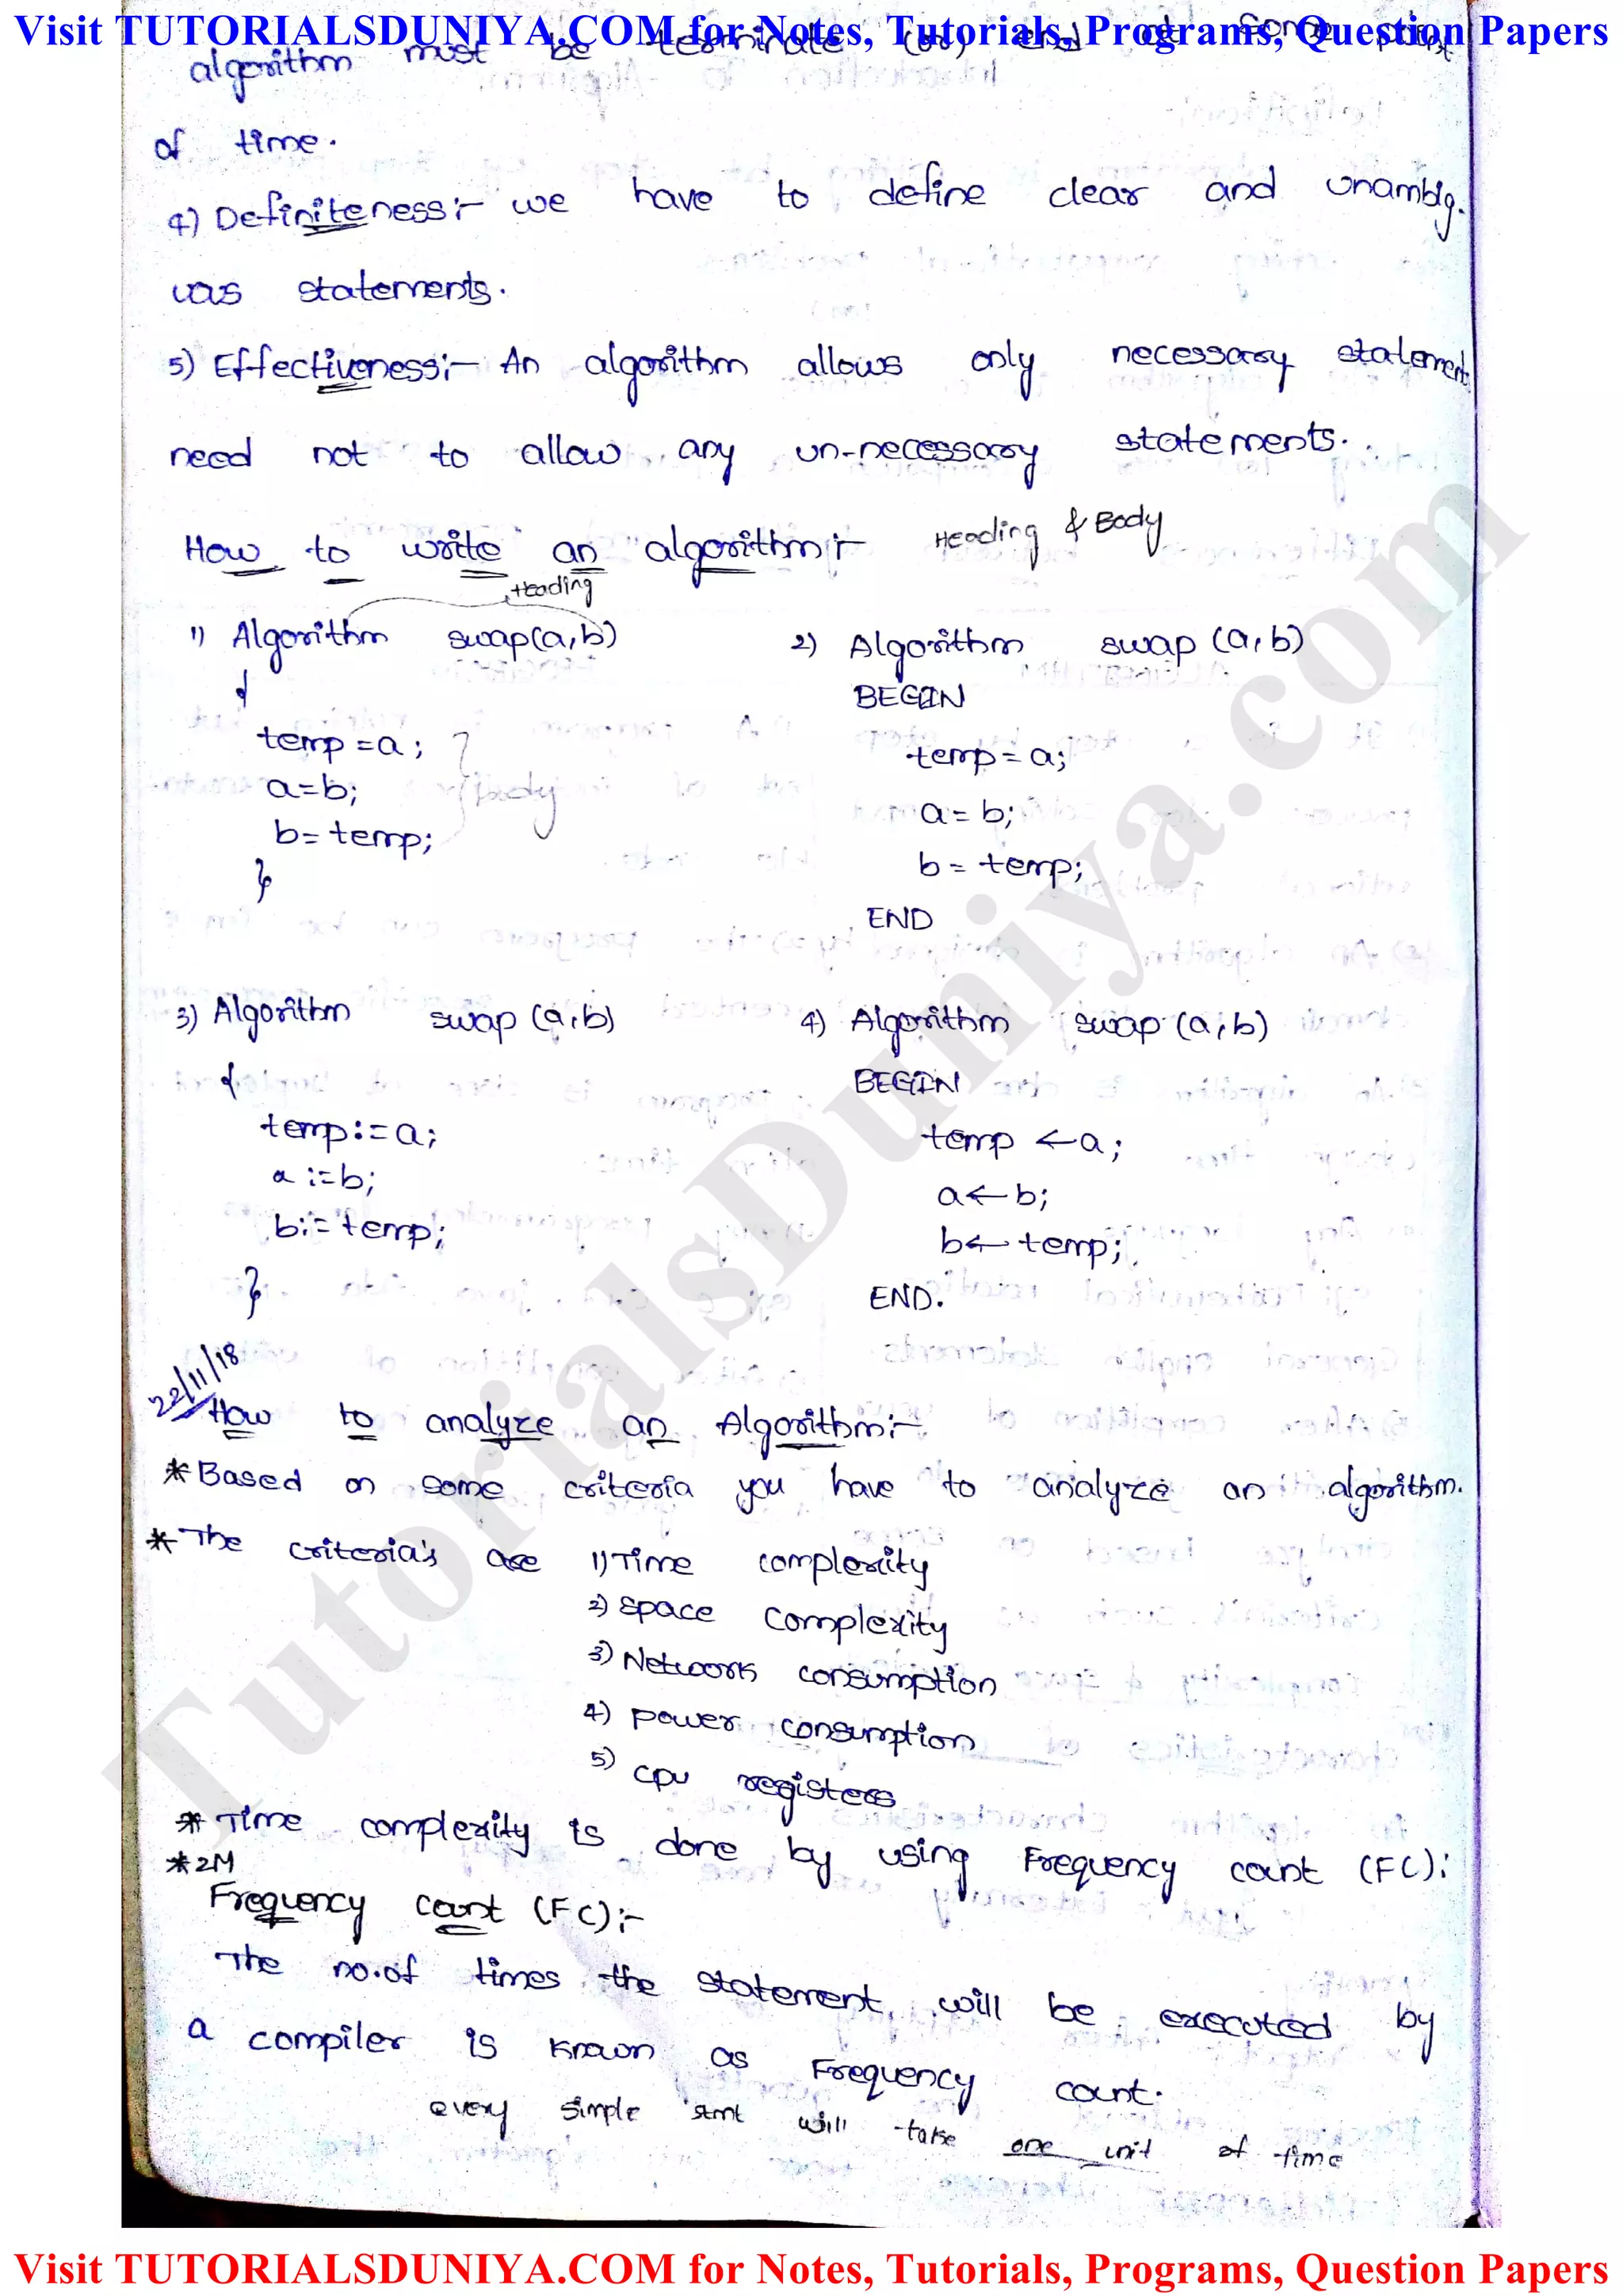 Visit TUTORIALSDUNIYA.COM for Notes, Tutorials, Programs, Question Papers
algorithm must be terminate (or) end at some point
of time.
4) Definiteness:- we have to define clear and unambig.
uous statements.
5) Effectiveness:- An algorithm allows only necessary statement
need not to allow any un-necessary statements.
How to write an algorithm:- Heading & Body
Heading
1) Algorithm swap(a,b)
{
temp =a;
a=b;
b= temp;
}
body
2) Algorithm swap (a,b)
BEGIN
temp = a;
a = b;
b = temp;
END
3) Algorithm swap (a,b)
{
temp:=a;
a :=b;
b:= temp;
}
4) Algorithm swap (a,b)
BEGIN
temp ←a;
a← b;
b← temp;
END.
22/11/18
How to analyze an Algorithm:-
*Based on some criteria you have to analyze an algorithm.
*The criteria's are 1) Time complexity
2) Space Complexity
3) Network consumption
4) power consumption
5) cpu registers
* Time complexity is done by using Frequency count (FC):
*2M
Frequency count (FC):-
The no.of times the statement will be executed by
a compiler is known as Frequency count.
every simple stmt will take one unit of time
TutorialsDuniya.com
Visit TUTORIALSDUNIYA.COM for Notes, Tutorials, Programs, Question Papers